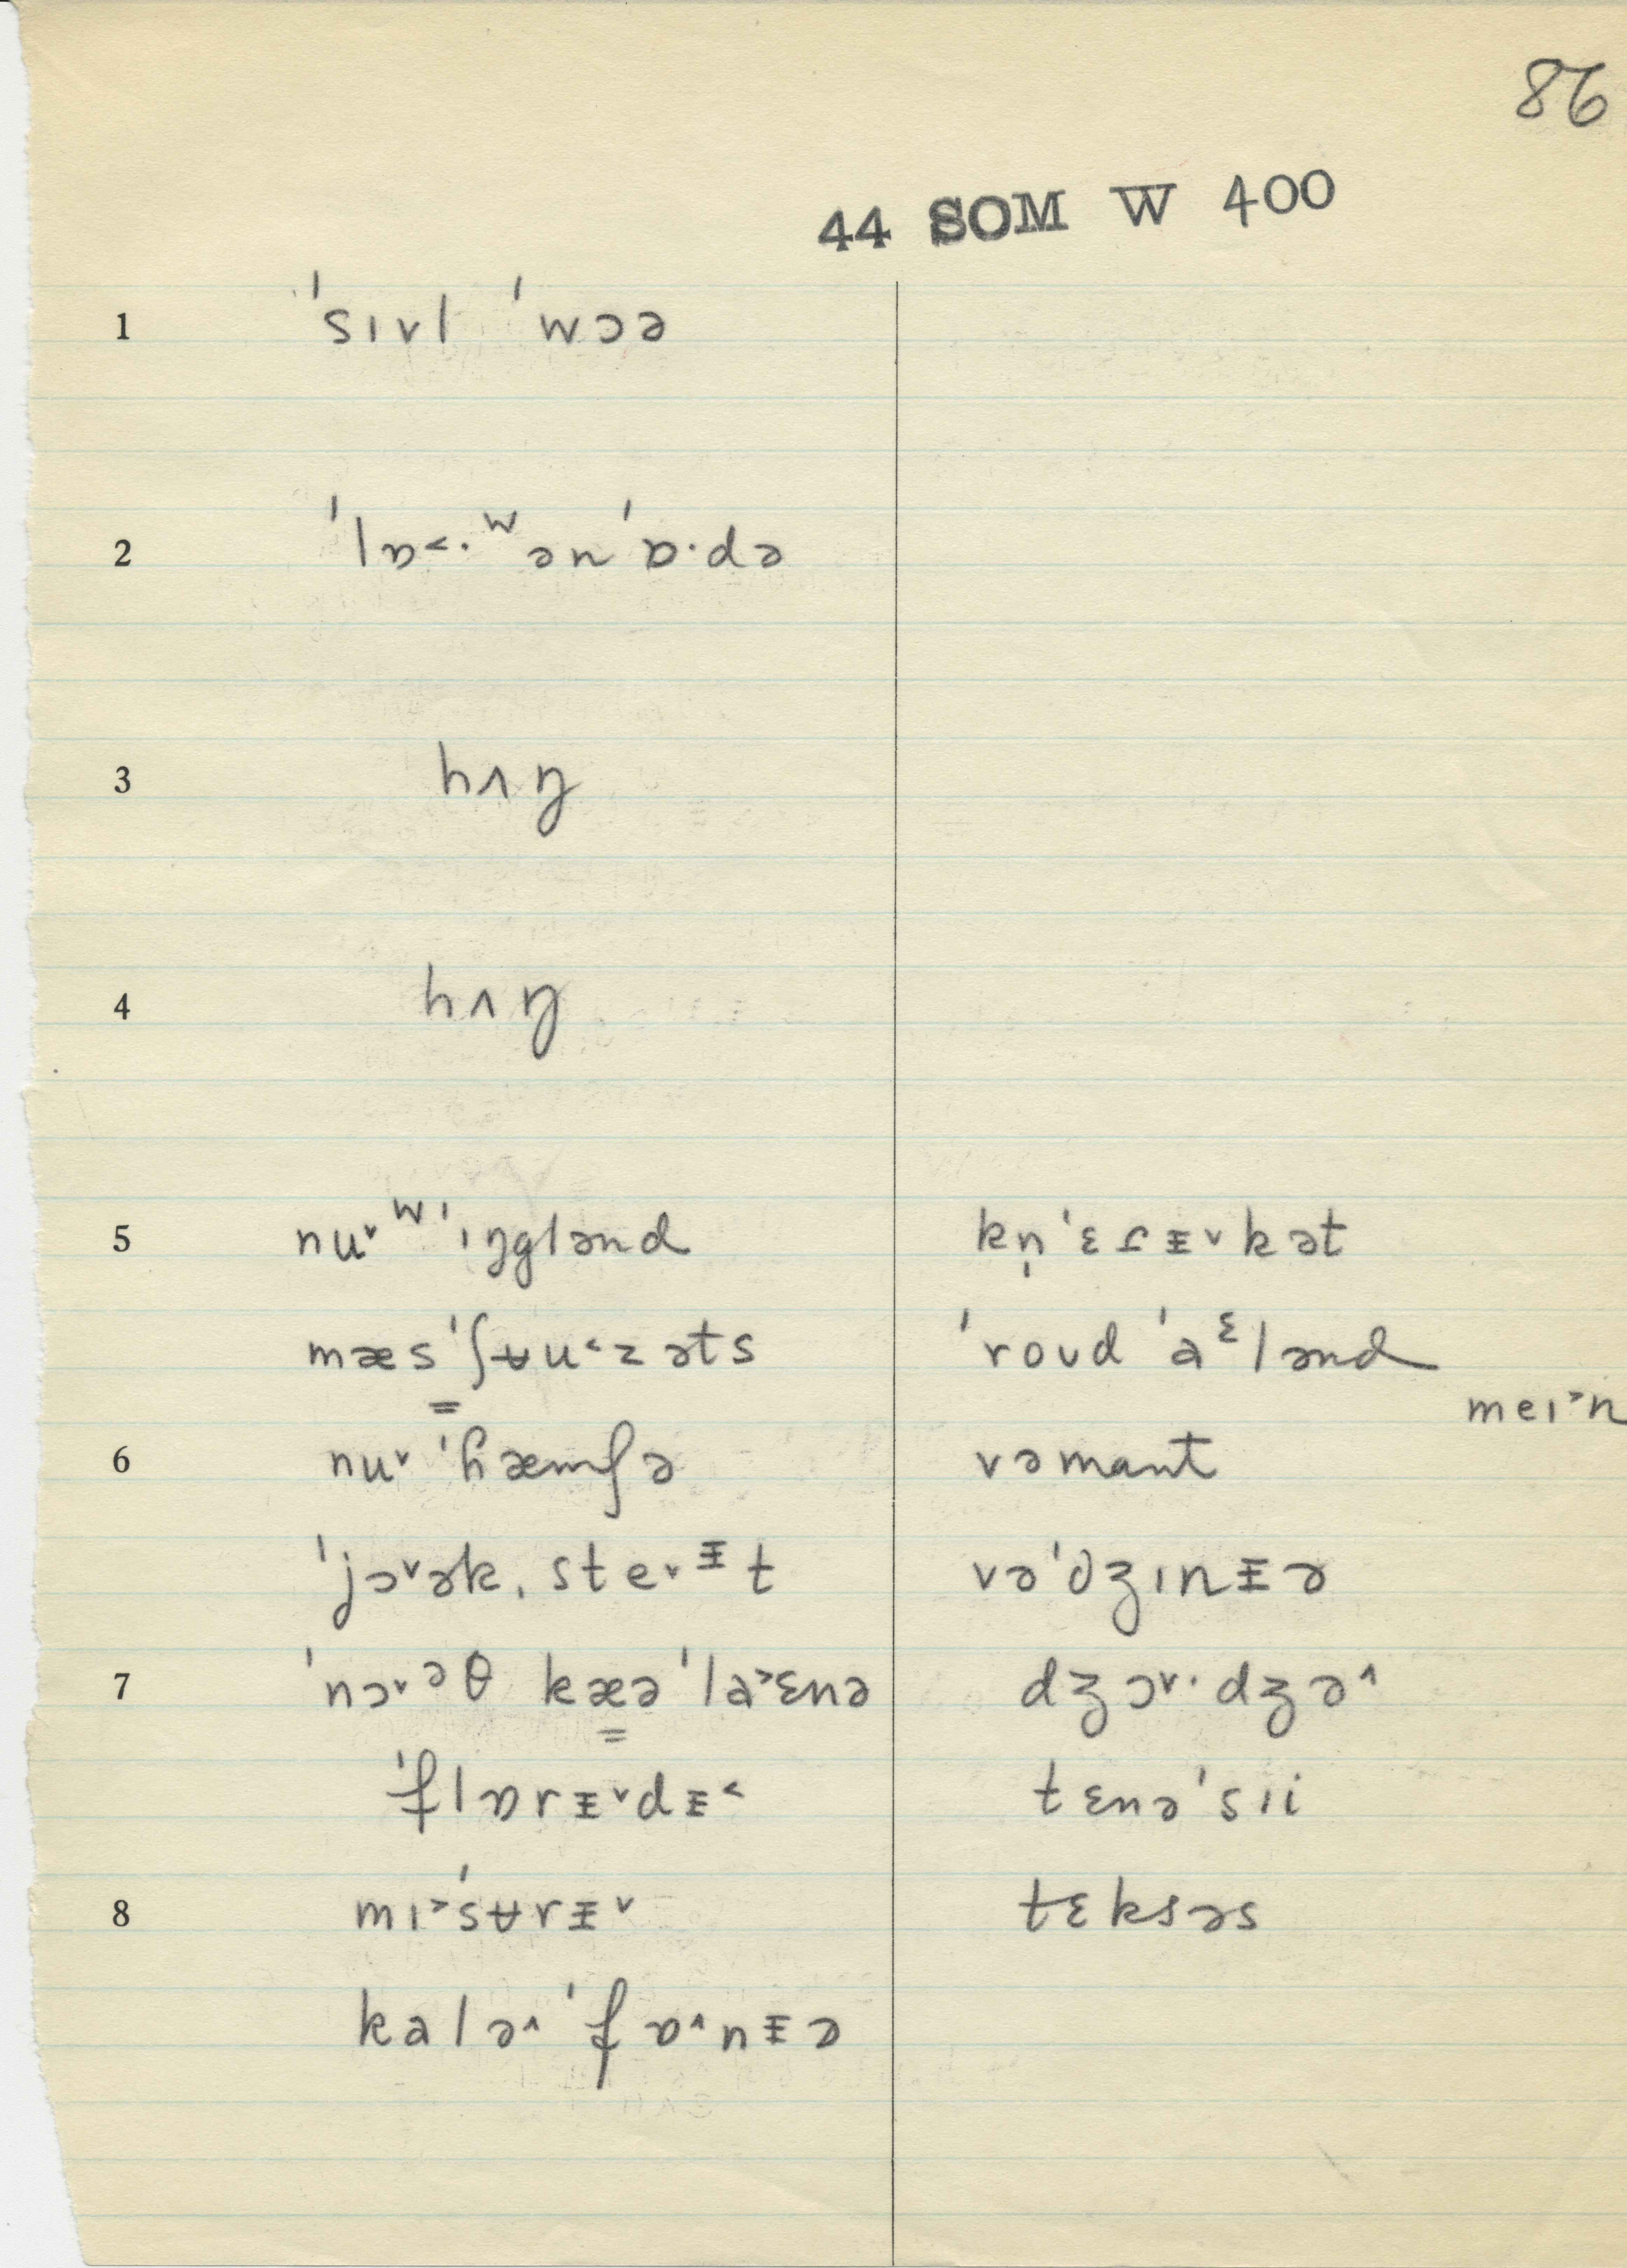 86
44 SOM W 400
1 ˈsɪvl ˈwɔə
2 ˈlɒ˂·ʷənˈɒ·də
3 hʌŋ
4 hʌŋ
5 nu˅ʷˈɪŋglənd kn̩ˈɛɾᵻ˅kət
mæsˈʃʉu˂zəts ˈroʊd ˈaᵋlənd
meɪ˃n
6 nu˅ ˈɦæmʃə vəmant
ˈjɔ˅ək ˌste˅ᵻt vəˈdʒɪnᵻə
7 ˈnɔ˅ᵊθ kæəˈla˃ɛnə dʒɔ˅·dʒə˄
ˈflɒrᵻ˅dᵻ˂ tɛnəˈsɪi
8 mɪ˃ˈsʉrᵻ˅ tɛksəs
kalə˄ˈfɒ˄nᵻə